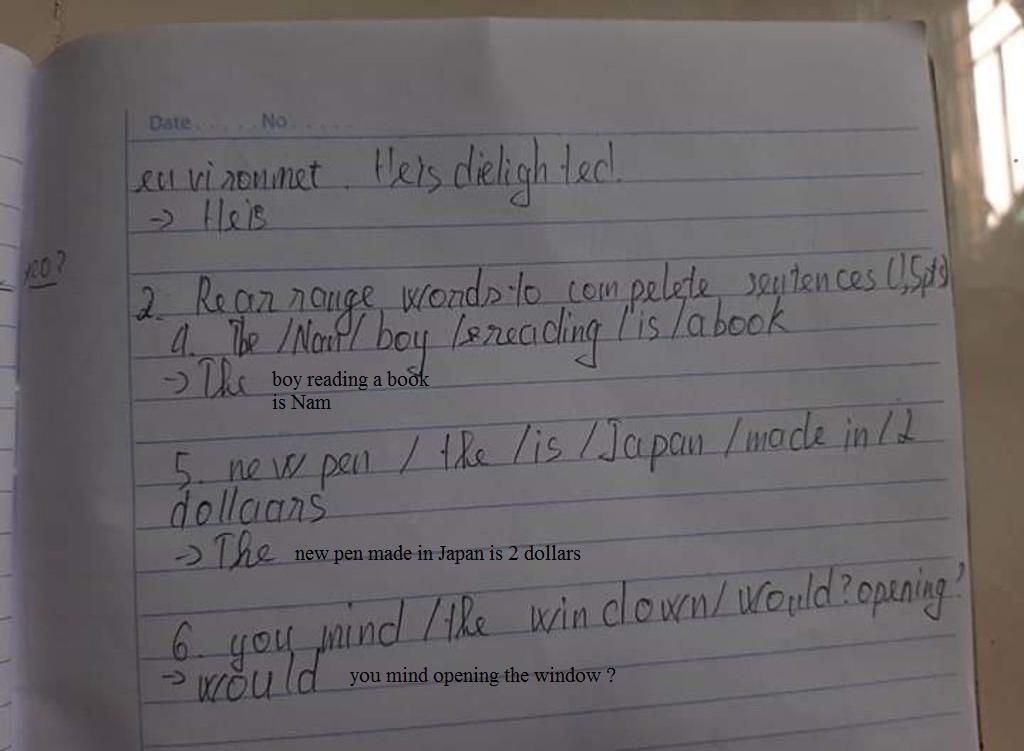 Date ..... No .....
environmet. He is dielighted.
→ He is
2. Rearrange words to compelete sentences (1,5pts)
4. The / Nam / boy / reading / is / a book
→ The boy reading a book
is Nam
5. new pen / the / is / Japan / made in / 2
dollaars
→ The new pen made in Japan is 2 dollars
6. you mind / the windown / would? opening?
→ would you mind opening the window ?